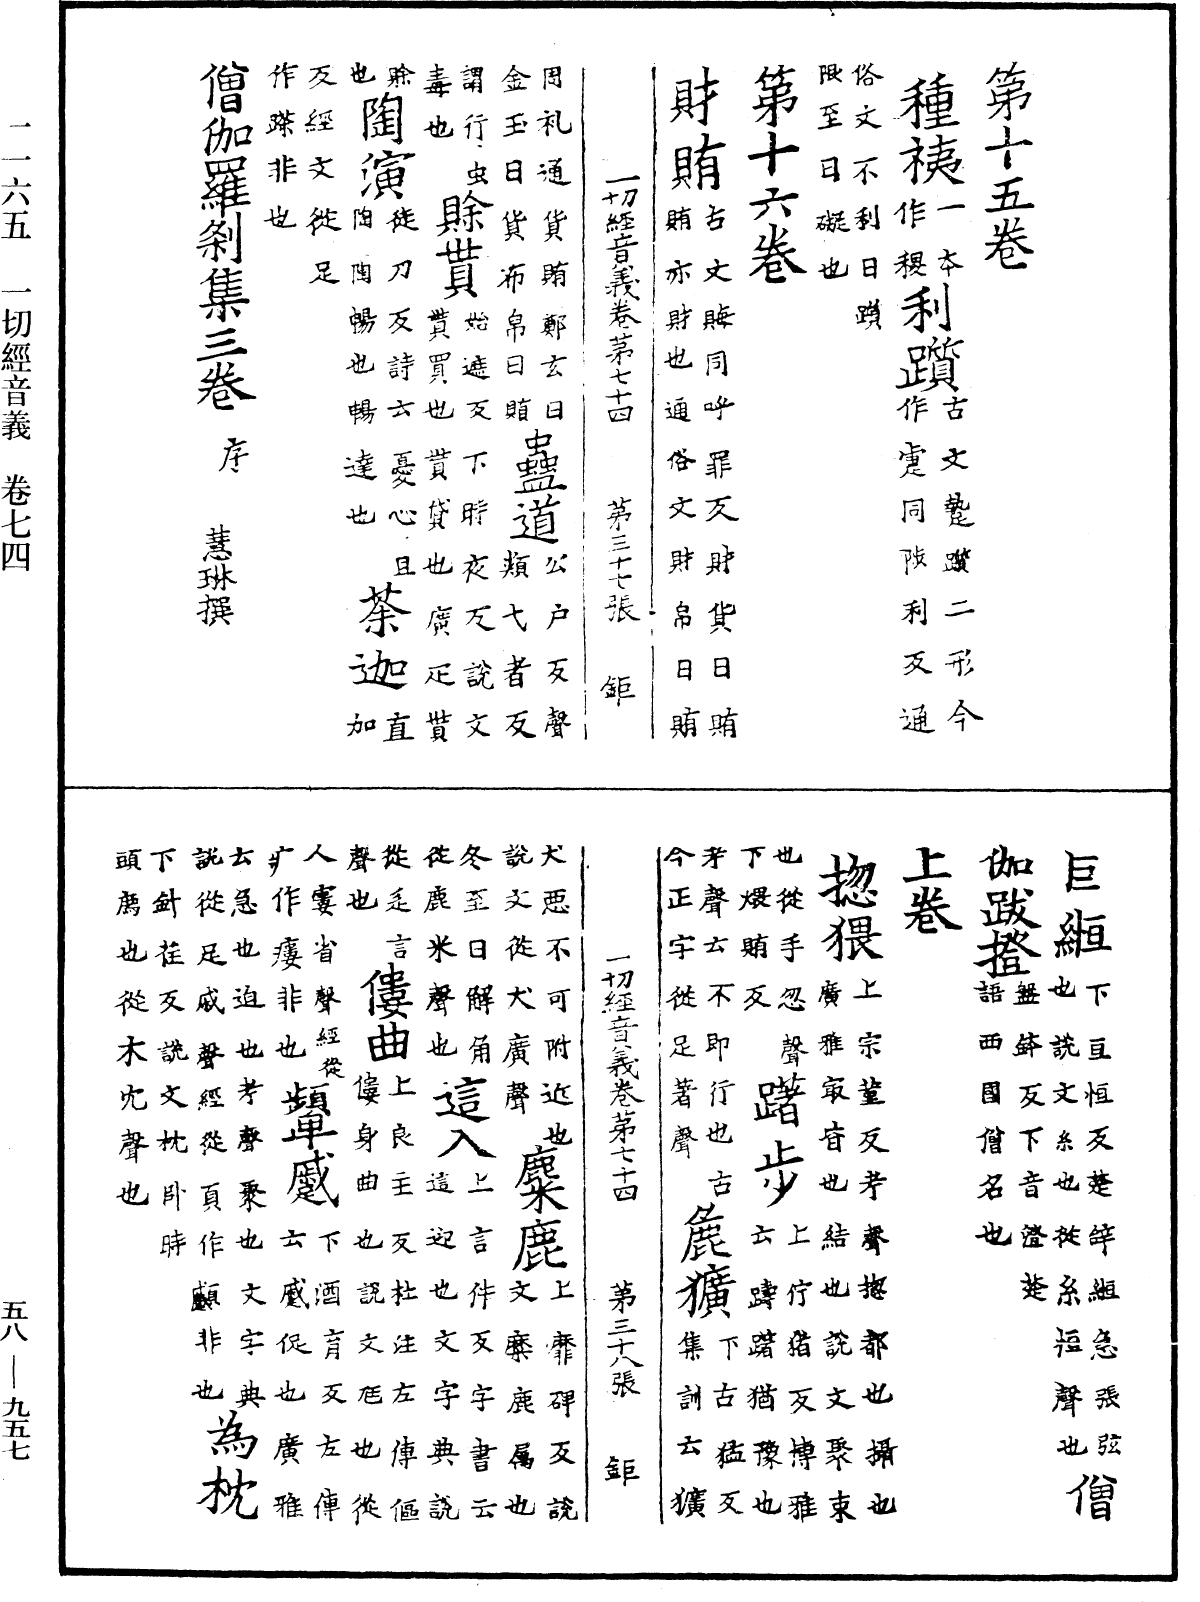 第十五卷
種䄻一本作稷利躓古文躓躓二形今作疐同陟利反通
俗文不利曰躓
限至曰礙也
第十六卷
財賄古文賄同呼罪反財貨曰賄
賄亦財也通俗文財帛曰賄
一切經音義卷第七十四 第三十七張 鉅
周礼通貨賄鄭玄曰
金玉曰貨布帛曰賄蠱道公户反聲類弋者反
謂行虫毒也賖貰始遮反下時夜反說文
貰買也貰貸也廣疋貰
賖也陶演徒刀反詩云憂心且陶陶暢也暢達也荼迦直加
反經文從足
作蹀非也
僧伽羅剎集三卷 序 慧琳撰
巨絚下亘恒反楚辞絚急張弦也說文糸也從糸恒聲也僧
伽跋橙盤鉢反下音澄楚語西國僧名也
上卷
揔猥上宗董反考聲揔都也攝也廣雅㝡皆也結也說文聚束
也從手忽聲
下煨賄反躇步上佇猪反博雅云躊躇猶豫也
考聲云不即行也古
今正字從足著聲麁獷下古猛反集訓云獷
一切經音義卷第七十四 第三十八張 鉅
犬悪不可附近也
說文從犬廣聲麋鹿上靡碑反說文麋鹿属也
冬至日解角
從鹿米聲也這入上言件反字書云這迎也文字典說
從辵言
聲也僂曲上良主反杜注左傳傴僂身曲也說文尫也從
人婁省聲經從
疒作瘻非也顰慼下酒育反左傳云慼促也廣雅
云急也迫也考聲聚也文字典
說從足戚聲經從頁作顣非也為枕
下針荏反說文枕卧時
頭廌也從木冘聲也
二一六五 一切經音義 卷七四
五八—九五七